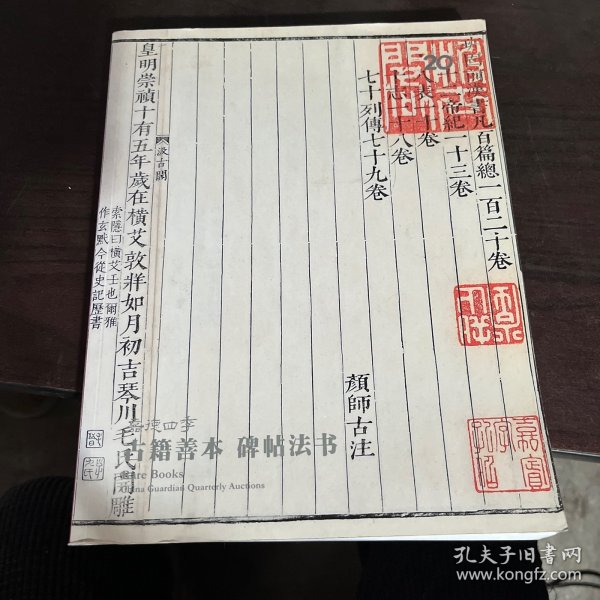 20
凡百篇總一百二十卷
帝紀一十三卷
七十列傳七十九卷
顏師古注
汲古閣
皇明崇禎十有五年歲在橫艾敦牂如月初吉琴川毛氏開雕
索隱曰橫艾壬也爾雅
作玄黓今從史記歷書
嘉德四季
古籍善本 碑帖法书
Rare Books
China Guardian Quarterly Auctions
孔夫子旧书网
www.kongfz.com